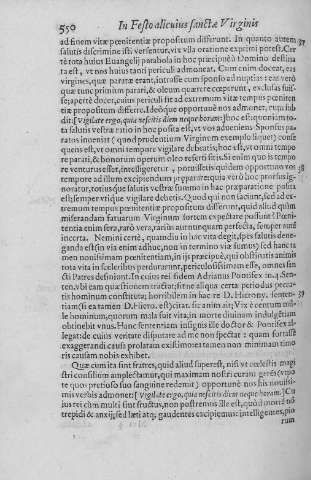 550 In Festo alicuius sanctæ Virginis
ad finem vitæ pœnitentiæ propositum differunt. In quanto autem 37
salutis discrimine isti versentur, vix vlla oratione exprimi potest. Cer
tè tota huius Euangelij parabola in hoc præcipuè à Domino destina
ta est, vt nos huius tanti periculi admoneat. Cum enim doceat, eas
virgines, quæ paratæ erant, introisse cum sponso ad nuptias: eas verò
quæ tunc primùm parari, & oleum quærere cœperunt, exclusas fuis-
se; apertè docet, cuius periculi sit ad extremum vitæ tempus pœniten
tiæ propositum differre. Ideòque opportunè nos admonet, cum sub
dit: [Vigilate ergo, quia nescitis diem neque horam:] hoc est: quoniam to-
ta salutis vestræ ratio in hoc posita est, vt vos adueniens Sponsus pa-
ratos inueniat (quod prudentium Virginem exemplo liquet) conse
quens est, vt omni tempore vigilare debeatis; hoc est, vt omni tempo
re parati, & bonorum operum oleo referti sitis. Si enim quo is tempo
re venturus esset, intelligeretur, possetis quidem opportunas vos 38
tempore ad illum excipiendum præparare: quia verò hoc prorsus ig-
noratur, totiusque salutis vestræ summa in hac præparatione posita
est, semper vtique vigilare debetis. Quod qui non faciunt, sed ad ex-
tremum tempus pœnitentiæ propositum differunt, quid aliud quàm
miserandam fatuarum Virginum sortem expectare possunt? Pœni-
tentia enim sera, rarò vera, rariùs autem quam perfecta, semper autem
incerta. Nemini certè, quandiu in hac vita degit, spes salutis dene-
ganda est (in via enim adhuc, non in termino viæ sumus) sed hanc ta
men nouissimam pœnitentiam, in ijs præcipuè, qui obstinatis animis
tota vita in sceleribus perdurant, periculosissimam esse, omnes san
cti Patres definiunt. In cuius rei fidem Adrianus Pontifex in 4. Sen-
ten. vbi eam quæstionem tractat: sit ne aliqua certa periodus pecca-
tis hominum constituta; horribilem in hac re D. Hierony. senten- 39
tiam (si ea tamen D. Hiero. est) citat. Sic enim ait: Vix è centum mil-
le hominum, quorum mala fuit vita, in morte diuinam indulgentiam
obtinebit vnus. Hanc sententiam insignis ille doctor & Pontifex al-
legat: de cuius veritate disputare ad me non spectat: quam si fortasse
exaggerandi causa prolatam existimo: ea tamen non minimam timo
ris causam nobis exhibet.
Quæ cum ita sint fratres, quid aliud superest, nisi vt cœlestis magi
stri consilium amplectamur, qui maximam nostri curam gerens (vtpo
te quos pretioso suo sanguine redemit) opportunè nos his nouissi-
mis verbis admonet: [Vigilate ergo, quia nescitis diem neque horam.] Cu
ius rei cùm multi sint fructus, non postremus ille est, quòd mortē nō
trepidi & anxij, sed læti atque gaudentes excipiemus: intelligentes, pio
rum